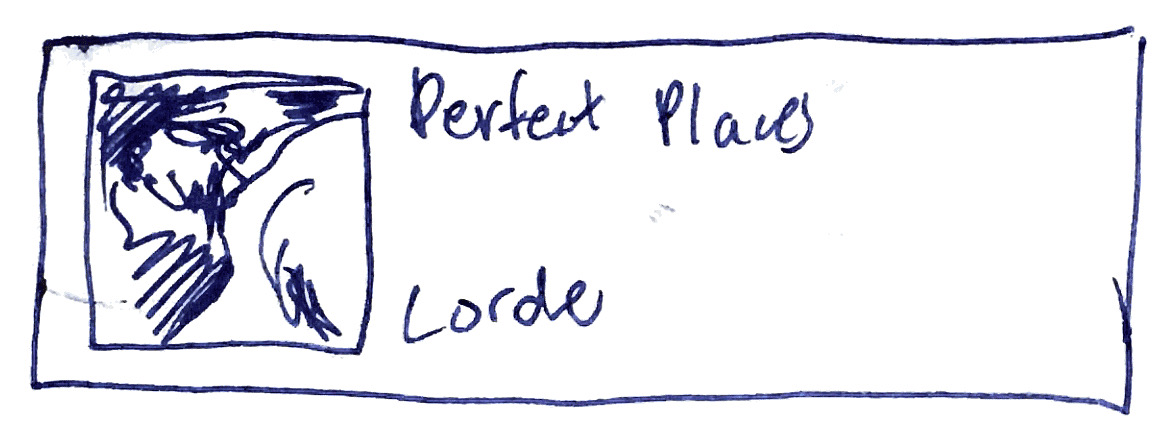 Perfect Places
Lorde